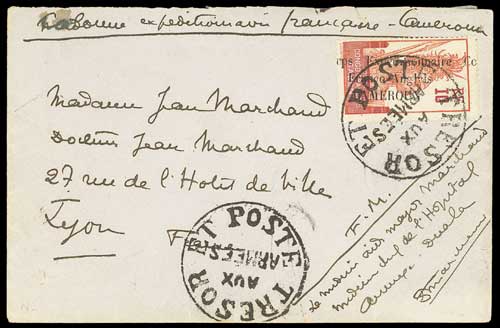 Colonne expéditionnaire française - Cameroun
rps Expéditionnaire Co
Franco-Anglais
CAMEROUN
10
TRESOR ET POSTE
AUX
ARMEES
Madame Jean Marchand
Docteur Jean Marchand
27 rue de l'Hotel de Ville
Lyon
TRESOR ET POSTE
AUX
ARMEES
F. M.
Le médecin aide major Marchand
médecin chef de l'Hopital
Duala